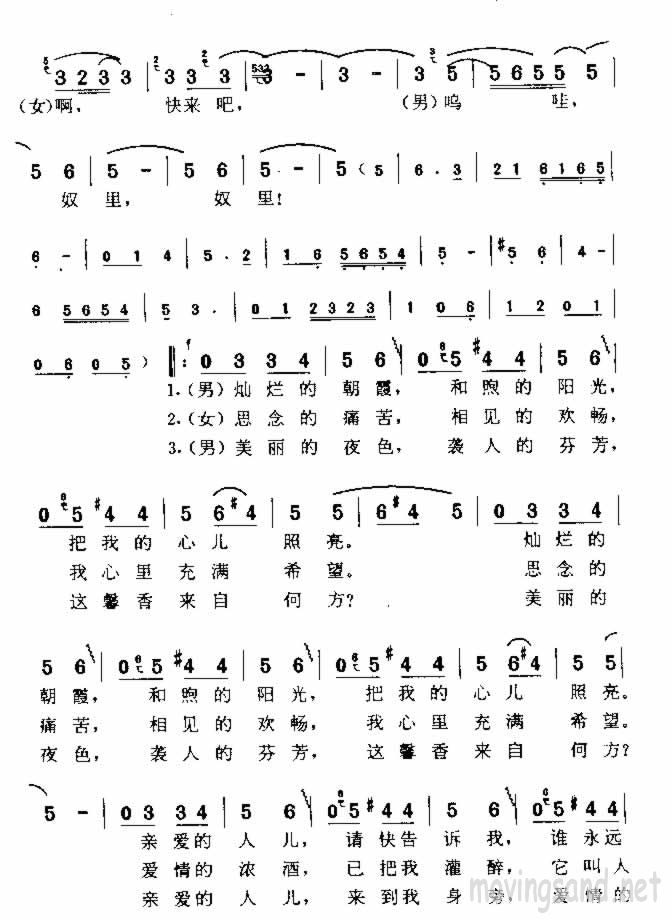 3 2 3 3 | 3 3 3 3 | 3 - | 3 - | 3 5 | 5 6 5 5 5
(女)啊， 快来吧， (男)呜 哇，
5 6 | 5 - | 5 6 | 5 - | 5 (5 | 6 . 3 | 2 1 6 1 6 5
奴里， 奴里！
6 - | 0 1 4 | 5 . 2 | 1 6 5 6 5 4 | 5 - | #5 6 | 4 -
6 5 6 5 4 | 5 3 . | 0 1 2 3 2 3 | 1 0 6 | 1 2 0 1
0 6 0 5 ) ‖: 0 3 3 4 | 5 6 | 0 5 #4 4 | 5 6
1.(男)灿烂的朝霞，和煦的阳光，
2.(女)思念的痛苦，相见的欢畅，
3.(男)美丽的夜色，袭人的芬芳，
0 5 #4 4 | 5 6 #4 | 5 5 | 6 #4 5 | 0 3 3 4
把我的心儿照亮。 灿烂的
我心里充满希望。 思念的
这馨香来自何方？ 美丽的
5 6 | 0 5 #4 4 | 5 6 | 0 5 #4 4 | 5 6 #4 | 5 5
朝霞，和煦的阳光，把我的心儿照亮。
痛苦，相见的欢畅，我心里充满希望。
夜色，袭人的芬芳，这馨香来自何方？
5 - | 0 3 3 4 | 5 6 | 0 5 #4 4 | 5 6 | 0 5 #4 4
亲爱的人儿，请快告诉我，谁永远
爱情的浓酒，已把我灌醉，它叫人
亲爱的人儿，来到我身旁，爱情的
movingsand.net